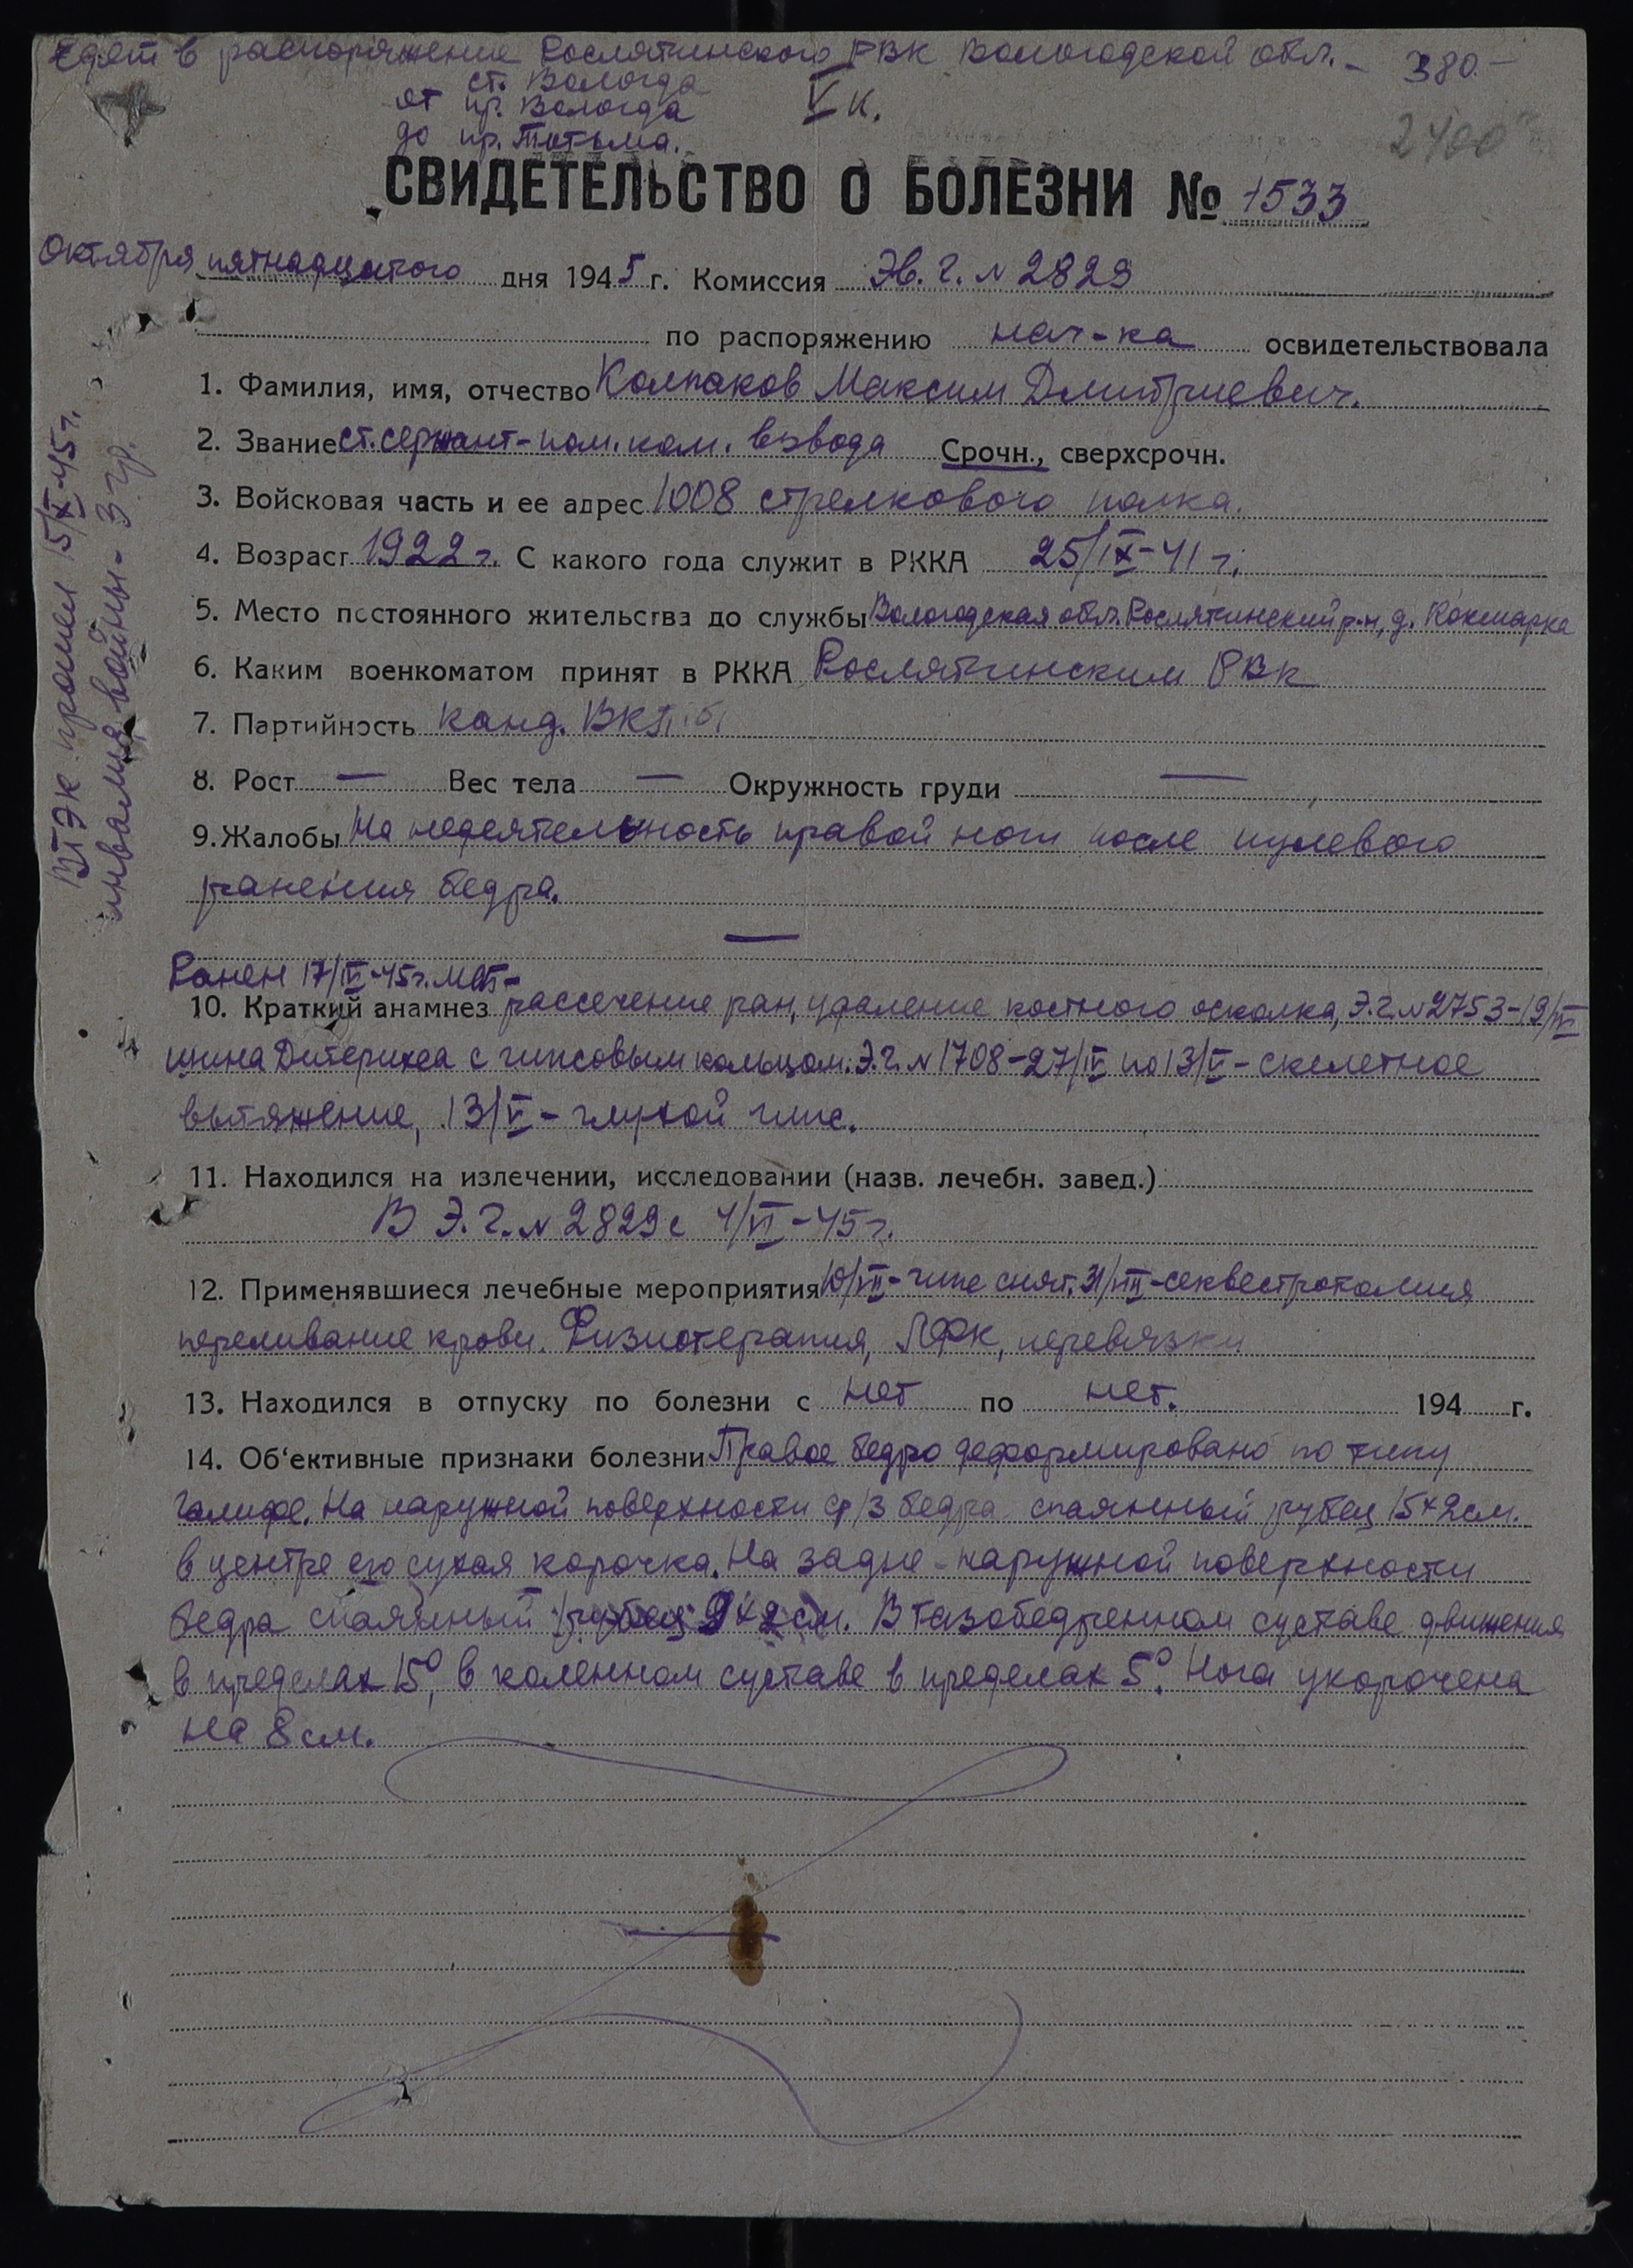 Едет в распоряжение Рослятинского РВК Вологодской обл. - 380.-
ст. Вологда
от пр. Вологда
до пр. Тотьма.
V к.
2400
СВИДЕТЕЛЬСТВО О БОЛЕЗНИ № 1533
Октября пятнадцатого дня 1945 г. Комиссия Эв. г. N 2829
по распоряжению нач-ка освидетельствовала
1. Фамилия, имя, отчество Колпаков Максим Дмитриевич.
2. Звание ст. сержант - пом. ком. взвода Срочн., сверхсрочн.
3. Войсковая часть и ее адрес 1008 стрелкового полка.
4. Возраст 1922 г. С какого года служит в РККА 25/IX-41 г.
5. Место постоянного жительства до службы Вологодская обл. Рослятинский р-н, д. Кокшарка
6. Каким военкоматом принят в РККА Рослятинским РВК
7. Партийность канд. ВКП б
8. Рост — Вес тела — Окружность груди —
9. Жалобы На недеятельность правой ноги после пулевого
ранения бедра.
Ранен 17/IV-45г. МСБ-
10. Краткий анамнез рассечение ран, удаление костного осколка, Э.г. N 2753-19/IV
шина Дитерихса с гипсовым кольцом. Э.г. N 1708-27/IV по 13/V - скелетное
вытяжение, 13/V - глухой гипс.
11. Находился на излечении, исследовании (назв. лечебн. завед.)
В Э.г. N 2829 с 4/VI-45 г.
12. Применявшиеся лечебные мероприятия 10/VII - гипс снят. 31/VIII - секвестротомия
переливание крови. Физиотерапия, ЛФК, перевязки
13. Находился в отпуску по болезни с нет по нет. 194 г.
14. Об‘ективные признаки болезни Правое бедро деформировано по типу
галифе. На наружной поверхности ср/3 бедра спаянный рубец 15×2 см.
в центре его сухая корочка. На задне-наружной поверхности
бедра спаянный рубец 9×2 см. В тазобедренном суставе движения
в пределах 15°, в коленном суставе в пределах 5°. Нога укорочена
на 8 см.
ВТЭК прошел 15/X-45 г.
инвалид войны - 3 гр.